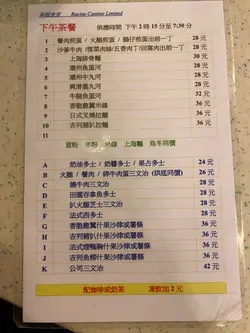 Racing Canteen Limited
下午茶餐 供應時間 下午2時15分至7:30分
1 餐肉煎蛋 / 火腿煎蛋 / 腸仔煎蛋出前一丁 28元
2 沙爹牛肉 / 雪菜肉絲 / 五香肉丁 出前一丁 28元
3 上海排骨麵 30元
4 潮州魚蛋河 28元
5 潮州牛丸河 28元
6 28元
7 牛腩魚蛋河 28元
8 香脆雞翼米線 36元
9 日式叉燒拉麵 36元
10 吉列豬扒拉麵 36元
11
米粉 米線 上海麵 烏冬同價
A 奶油多士 / 奶醬多士 / 果占多士 24元
B 火腿 / 餐肉 / 碎牛肉蛋三文治 (烘底同價) 26元
C 鮮牛肉三文治 28元
D 田園吞拿魚多士 28元
E 扒火腿芝士三文治 28元
F 法式西多士 28元
G 香脆雞翼什果沙律或薯條 36元
H 吉列豬扒什果沙律或薯條 36元
I 法式煙鴨胸什果沙律或薯條 36元
J 吉列魚柳什果沙律或薯條 36元
K 公司三文治 42元
配咖啡或奶茶 凍飲加3元